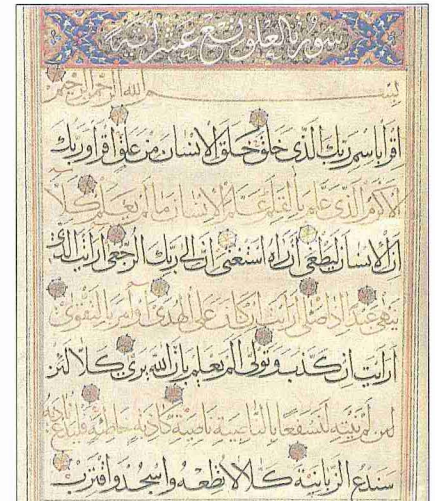 سورة العلق تسع عشر آية
بسم الله الرحمن الرحيم
اقرأ باسم ربك الذي خلق خلق الانسان من علق اقرأ وربك
الاكرم الذي علم بالقلم علم الانسان ما لم يعلم كلا
ان الانسان ليطغى ان راه استغنى ان الى ربك الرجعى ارايت الذي
ينهى عبدا اذا صلى ارايت ان كان على الهدى او امر بالتقوى
ارايت ان كذب وتولى الم يعلم بان الله يرى كلا لئن
لئن لم ينته لنسفعا بالناصية ناصية كاذبة خاطئة فليدع ناديه
سندع الزبانية كلا لا تطعه واسجد واقترب